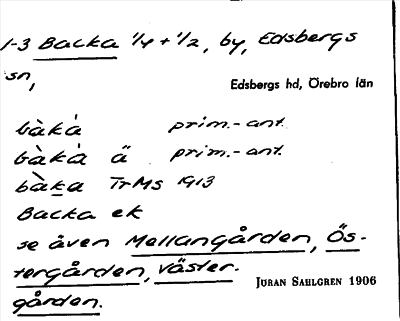 1-3 Backa 1/4 + 1/2, by, Edsbergs
sn,
Edsbergs hd, Örebro län
bàkȧ prim.-ant.
bàkȧ ä prim.-ant.
bàka TrMs 1913
Backa ek
se även Mellangården, Ös-
tergården, Väster-
gården.
JÖRAN SAHLGREN 1906